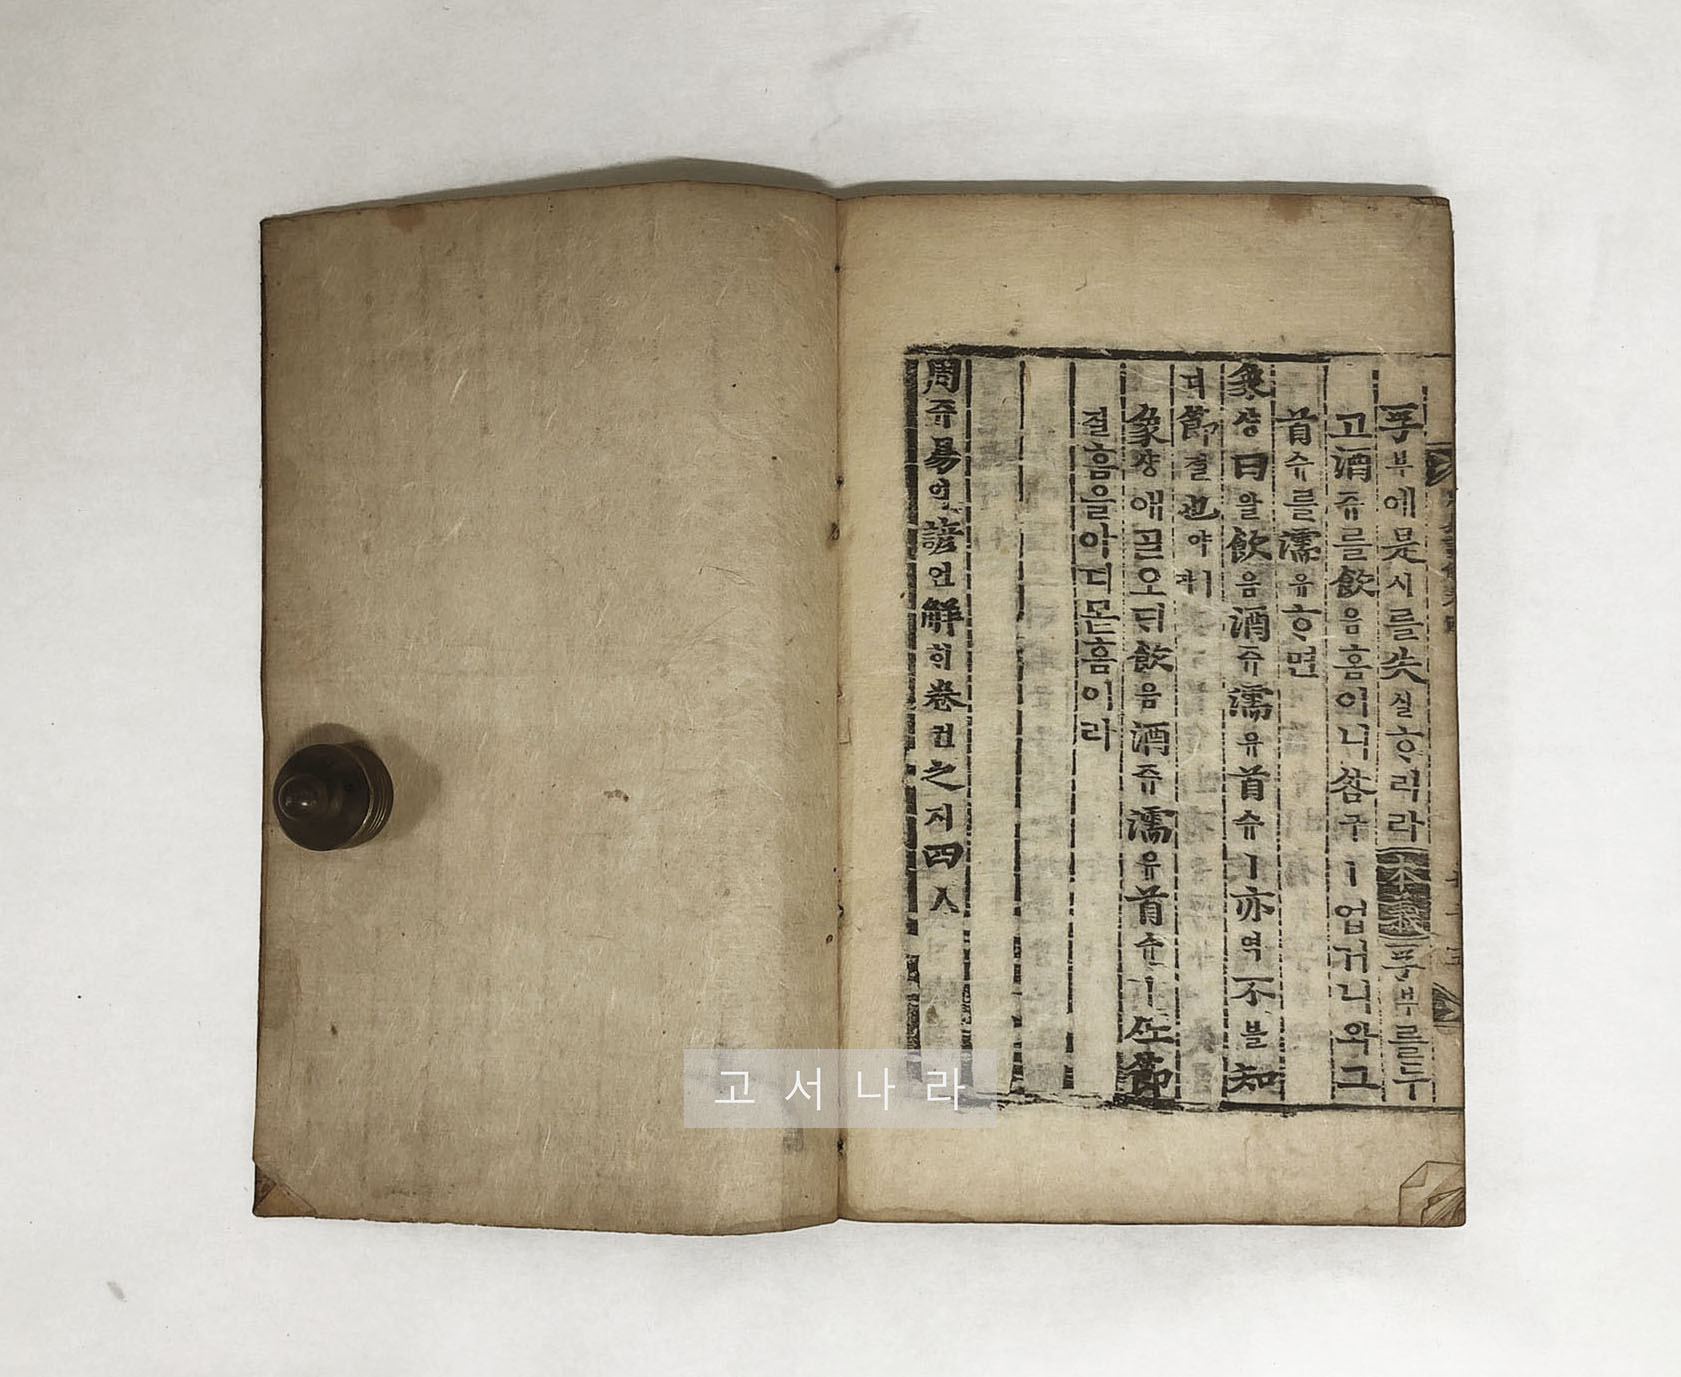 孚부에是시를失실ᄒᆞ리라本義孚부를두
고酒쥬를飮음홈이니咎구ㅣ업거니와그
首슈를濡유ᄒᆞ면
象샹曰왈飮음酒쥬濡유首슈ㅣ亦역不블知
디節졀也야ㅣ라
象샹애ᄀᆞᆯ오ᄃᆡ飮음酒쥬濡유首슈ㅣ 節
졀홈을아디몯홈이라
周쥬易역諺언解ᄒᆡ卷권之지四ᄉᆞ
고서나라